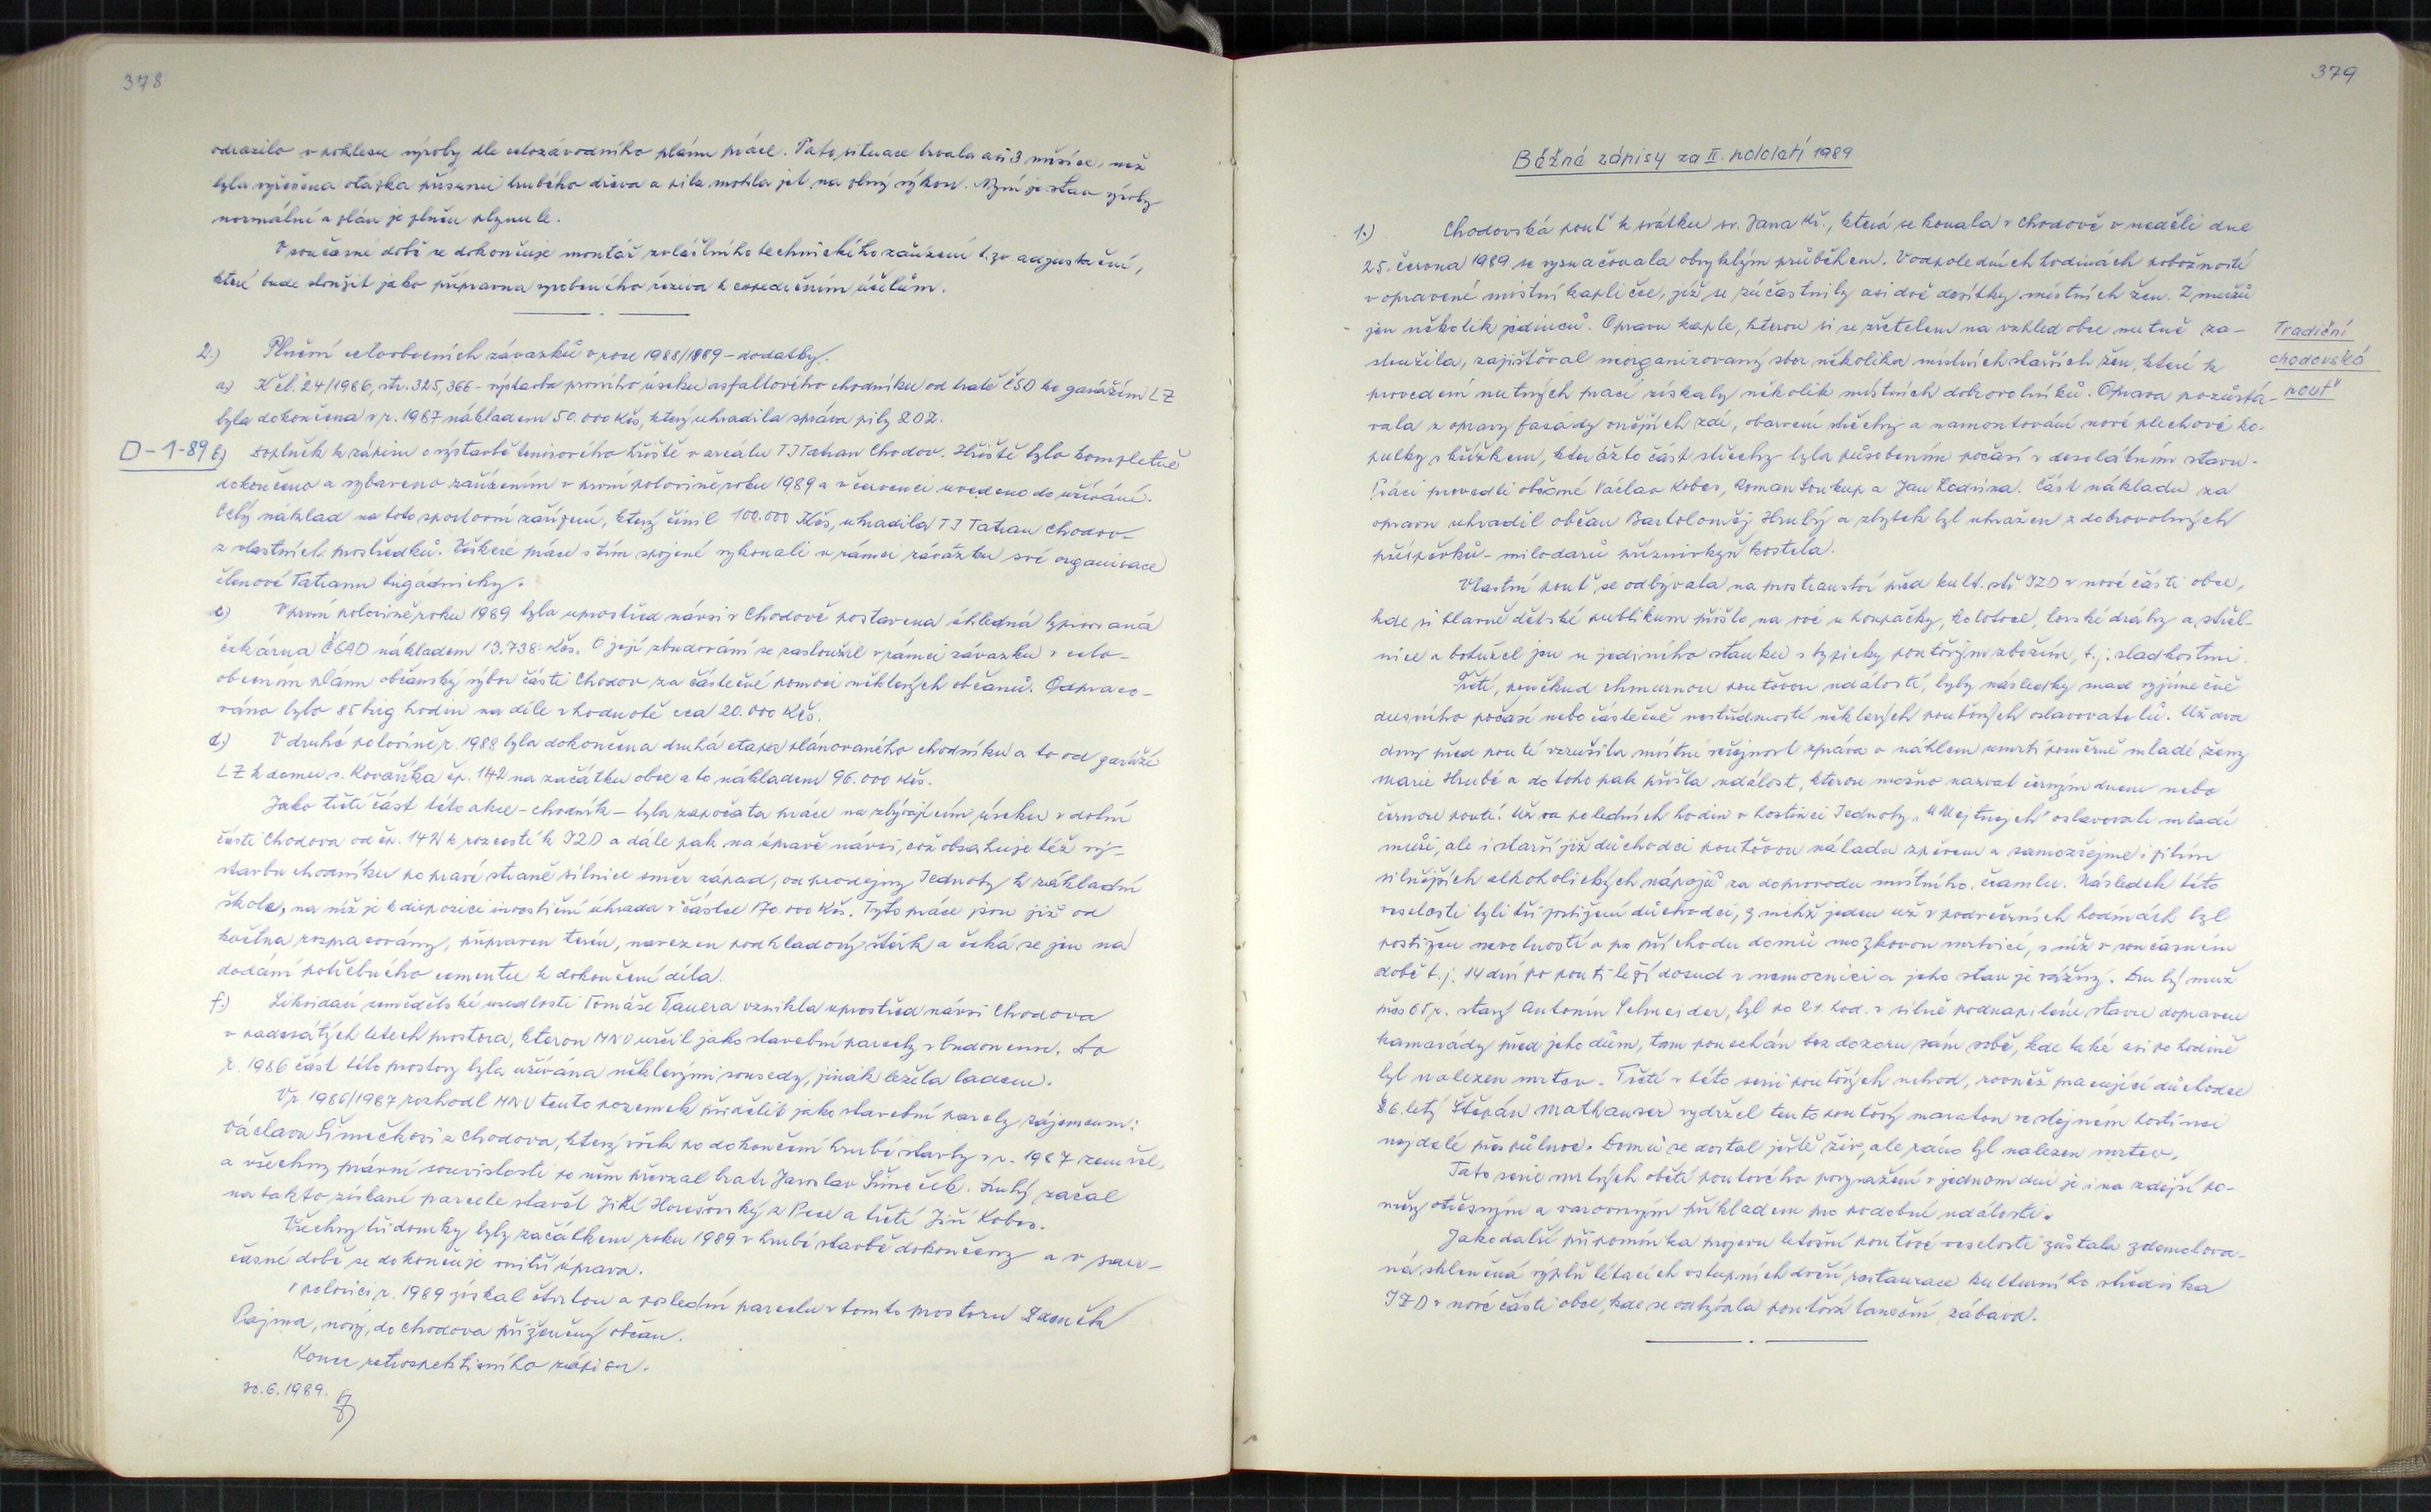 378
odrazilo v poklesu výroby dle celozávodního plánu práce. Tato situace trvala asi 3 měsíce, než
byla vyřešena otázka přísunu hrubého dřeva a pila mohla jet na plný výkon. Nyní je stav výroby
normální a plán je plněn plynule.
V současné době se dokončuje montáž zvláštního technického zařízení t.zv. adjustační,
které bude sloužit jako přípravna vyrobeného řeziva k expedičním účelům.
2.) Plnění celoobecních závazků v roce 1988/1989 - dodatky.
a) K čl. 24/1986, str. 325, 366 - výstavba prvního úseku asfaltového chodníku od tratě ČSD ke garážím LZ
byla dokončena v r. 1987 nákladem 50.000 Kčs, který uhradila správa pily 202.
D-1-89 b) Doplněk k zápisu o výstavbě tenisového hřiště v areálu TJ Tatran Chodov. Hřiště bylo kompletně
dokončeno a vybaveno zařízením v první polovině roku 1989 a v červenci uvedeno do užívání.
Celý náklad na toto sportovní zařízení, který činil 100.000 Kčs, uhradila TJ Tatran Chodov
z vlastních prostředků. Veškeré práce s tím spojené vykonali v rámci závazku své organisace
členové Tatranu brigádnicky.
c) V první polovině roku 1989 byla uprostřed návsi v Chodově postavena úhledná typisovaná
čekárna ČSAD nákladem 13.738.- Kčs. O její zbudování se zasloužil v rámci závazku v celo-
obecním plánu občanský výbor části Chodov za částečné pomoci některých občanů. Odpraco-
váno bylo 85 brig hodin na díle v hodnotě cca 20.000 Kčs.
d.) V druhé polovině r. 1988 byla dokončena druhá etapa plánovaného chodníku a to od garáží
LZ k domu s. Kovaříka čp. 142 na začátku obce a to nákladem 96.000 Kčs.
Jako třetí část této akce - chodník - byla započata práce na zbývajícím úseku v dolní
části Chodova od čp. 142 k rozcestí k JZD a dále pak na úpravě návsi, což obsahuje též vý-
stavbu chodníku po pravé straně silnice směr západ, od prodejny Jednoty k základní
škole, na níž je k dispozici investiční úhrada v částce 170.000 Kčs. Tyto práce jsou již od
května rozpracovány, připraven terén, navezen podkladový štěrk a čeká se jen na
dodání potřebného cementu k dokončení díla.
f.) Likvidací zemědělské usedlosti Tomáše Tauera vznikla uprostřed návsi Chodova
v padesátých letech prostora, kterou MNV určil jako stavební parcely v budoucnu. Do
r. 1986 část této prostory byla užívána některými sousedy, jinak ležela ladem.
V r. 1986/1987 rozhodl MNV tento pozemek přidělit jako stavební parcely zájemcům:
Václavu Šimečkovi z Chodova, který však po dokončení hrubé stavby v r. 1987 zemřel,
a všechny právní souvislosti po něm převzal bratr Jaroslav Šimeček. Druhý začal
na takto získané parcele stavět Jiří Horešovský z Pece a třetí Jiří Kobes.
Všechny tři domky byly začátkem roku 1989 v hrubé stavbě dokončeny a v sou-
časné době se dokončuje vnitřní úprava.
V polovici r. 1989 získal čtvrtou a poslední parcelu v tomto prostoru Zdeněk
Pajma, nový, do Chodova přiženěný občan.
Konec retrospektivního zápisu.
30.6.1989.
379
Běžné zápisy za II. pololetí 1989
1.) Chodovská pouť k svátku sv. Jana Kř., která se konala v Chodově v neděli dne
25. června 1989 se vyznačovala obvyklým průběhem. V odpoledních hodinách pobožností
v opravené místní kapličce, jíž se zúčastnily asi dvě desítky místních žen. Z mužů
jen několik jedinců. Opravu kaple, kterou si se zřetelem na vzhled obce nutně za-
sloužila, zajišťoval neorganizovaný sbor několika místních starších žen, které k
provedení nutných prací získaly několik místních dobrovolníků. Oprava pozůstá-
vala z opravy fasády vnějších zdí, obarvení střechy a namontování nové plechové ko-
pulky s křížkem, kterážto část střechy byla působením počasí v desolátním stavu.
Tradiční
chodovská
pouť
Práci provedli občané Václav Kobes, Roman Soukup a Jan Hodina. Část nákladu za
opravu uhradil občan Bartoloměj Hrubý a zbytek byl uhražen z dobrovolných
příspěvků - milodarů příznivkyň kostela.
Vlastní pouť se odbývala na prostranství před kult. stř. JZD v nové části obce,
kde si hlavně dětské publikum přišlo na své u houpačky, kolotoče, lovské dráhy a střel-
nice a bohužel jen u jediného stánku s typicky pouťovým zbožím, t.j. sladkostmi.
Třetí, poněkud chmurnou pouťovou událostí, byly následky snad výjimečně
dusného počasí nebo částečně nestřídmosti některých pouťových oslavovatelů. Už dva
dny před poutí vzrušila místní veřejnost zpráva o náhlém úmrtí poměrně mladé ženy
Marie Hrubé a do toho pak přišla událost, kterou možno nazvat černým dnem nebo
černou poutí. Už za poledních hodin v hostinci Jednoty "U Mejtnejch" oslavovali mladí
muži, ale i starší již důchodci pouťovou náladu zpěvem a samozřejmě i pitím
silnějších alkoholických nápojů za doprovodu místního čamlu. Následek této
veselosti byli tři postižení důchodci, z nichž jeden už v podvečerních hodinách byl
postižen nevolností a po příchodu domů mozkovou mrtvicí, s níž v současném
době t.j. 14 dní po pouti leží dosud v nemocnici a jeho stav je vážný. Druhý muž
přes 65 r. starý Antonín Schneider, byl po 21. hod. v silně podnapilém stavu dopraven
kamarády před jeho dům, tam ponechán bez dozoru sám sobě, kde také asi po hodině
byl nalezen mrtev. Třetí v této serii pouťových nehod, rovněž pracující důchodce
86. letý Štěpán Mathauser vydržel tento pouťový maraton ve stejném hostinci
nejdéle přes půlnoc. Domů se dostal ještě živ, ale ráno byl nalezen mrtev.
Tato serie mrtvých obětí pouťového povyražení v jednom dni je i na zdejší po-
měry otřesným a varovným příkladem pro podobní události.
Jako další připomínka projevu letošní pouťové veselosti zůstala zdemolova-
ná skleněná výplň lítacích vstupních dveří restaurace kulturního střediska
JZD v nové části obce, kde se odbývala pouťová taneční zábava.